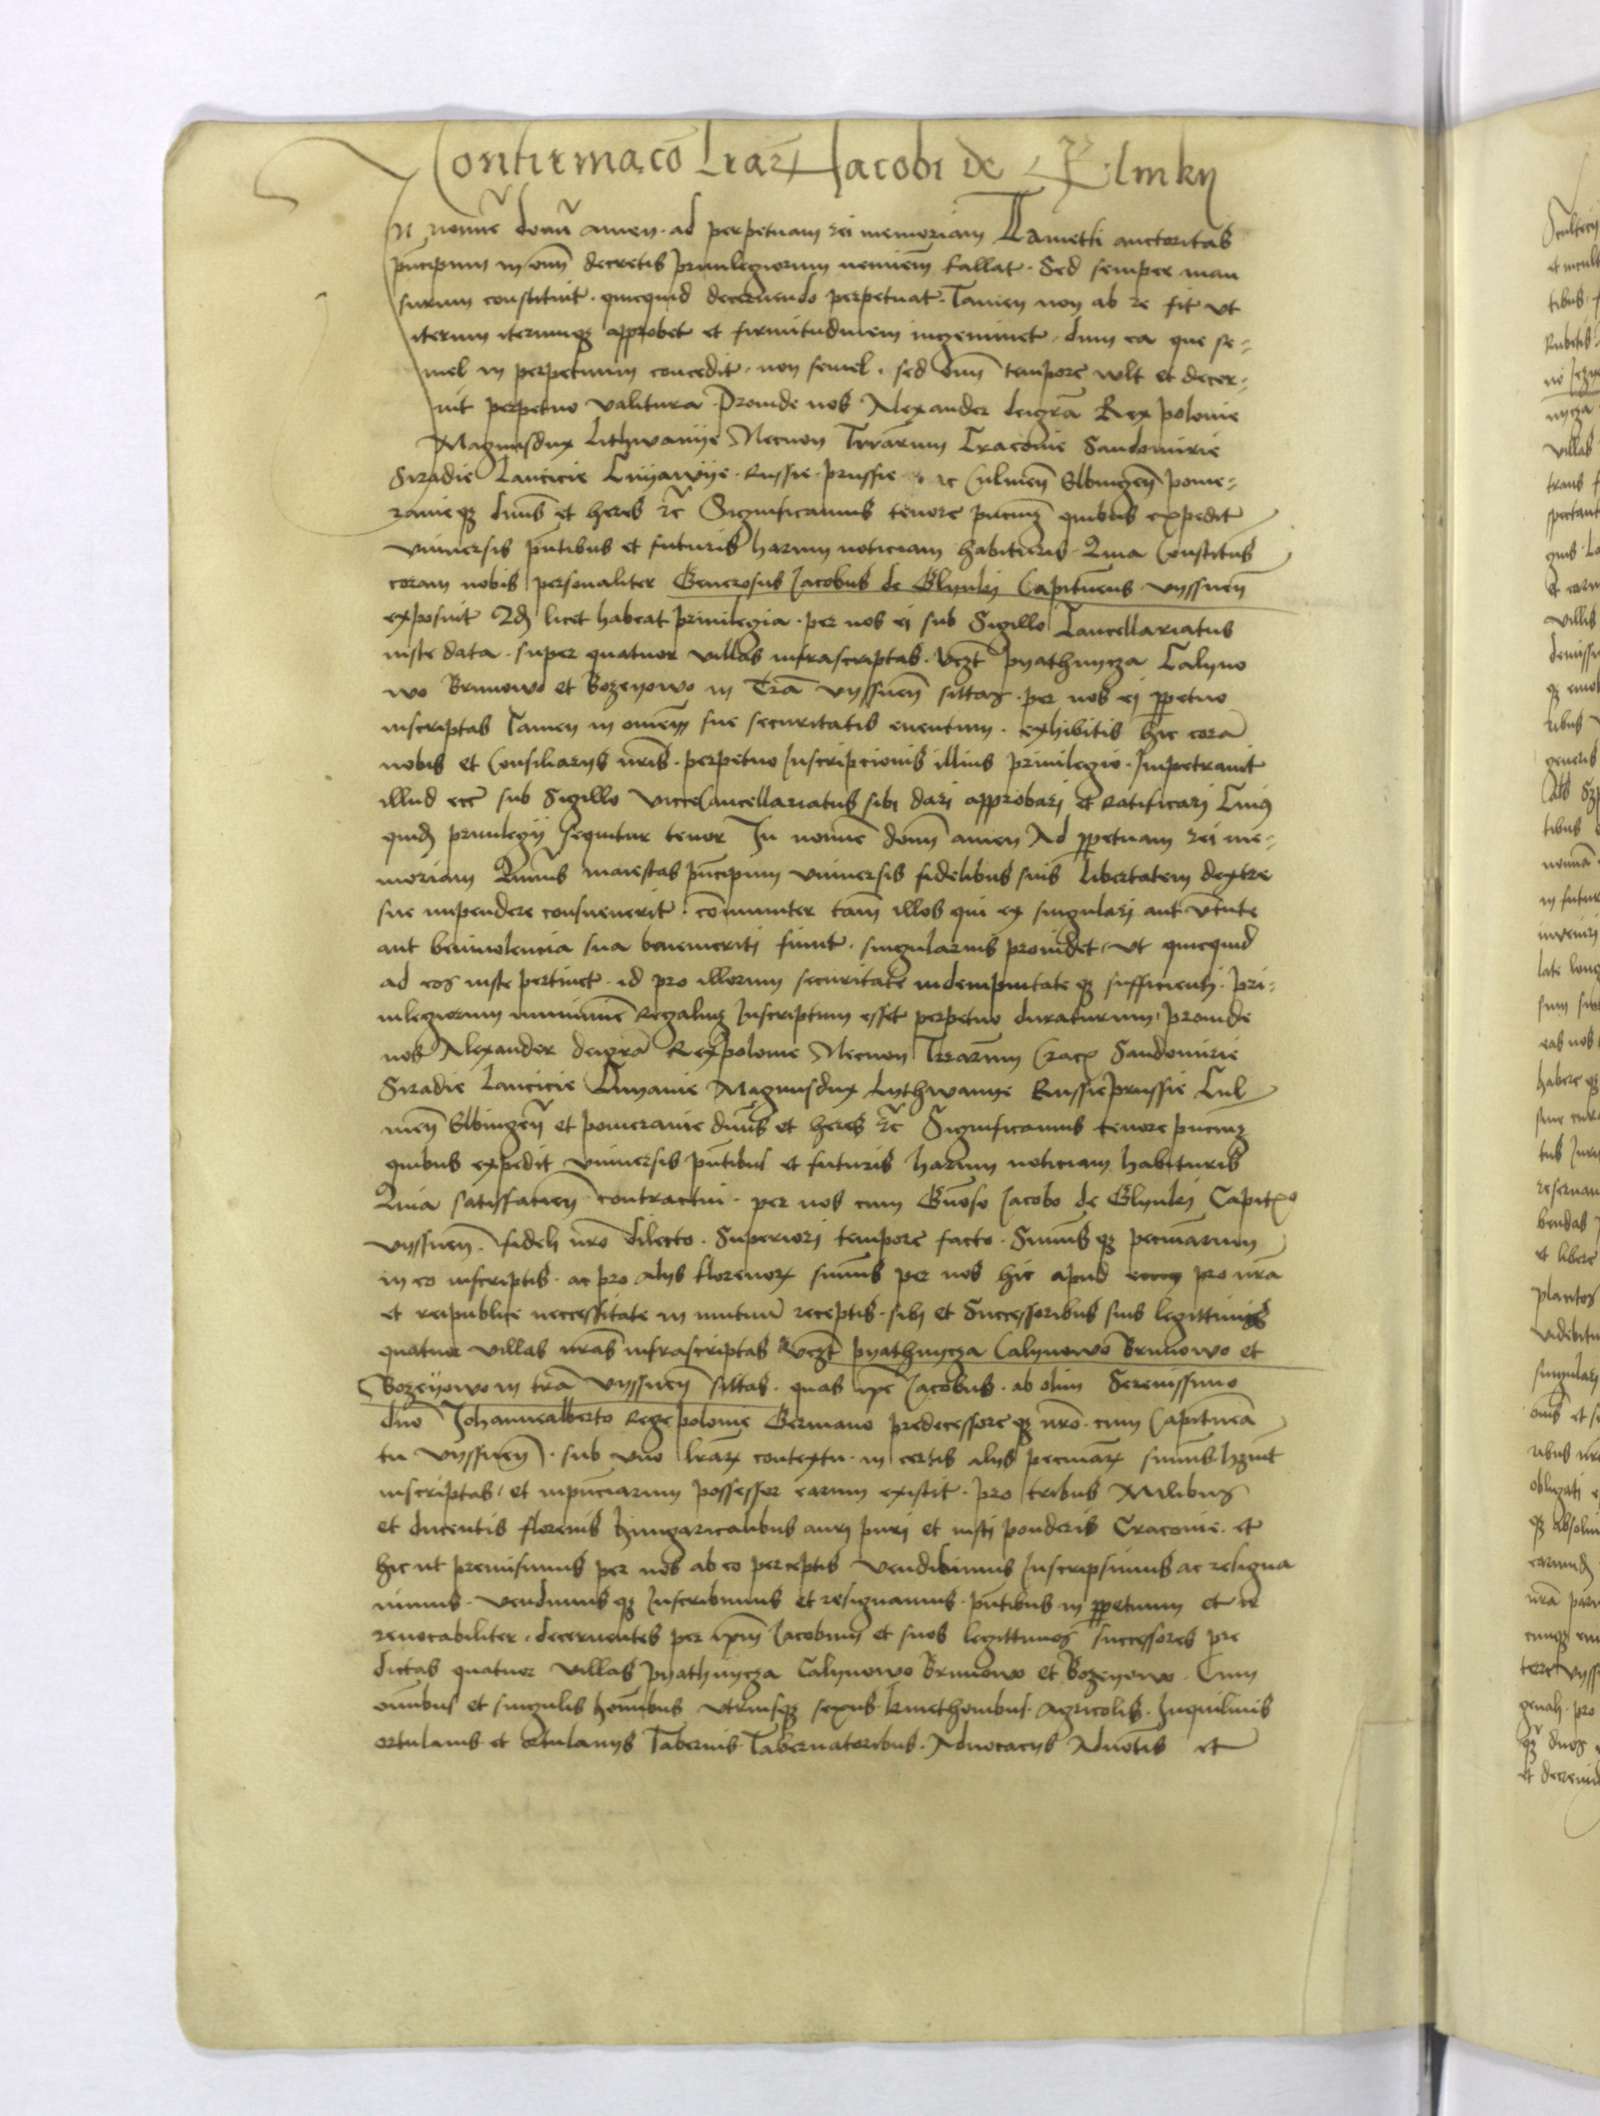 Confirmacō Lrar Jacobi de Glinky
In noīe domī amen · ad perpetuam rei memoriam Tametsi auctoritas
prīcipum in oīm decretis privilegiorum neminem fallat · Sed semper man
surum constituit · quicquid decernendo perpetuat · Tamen non ab re fit ut
iterum iterumq approbet et firmitudinem ingeminet · dum ea que se-
mel in perpetuum concedit · non semel · sed oīm tempore vult et decer-
nit perpetuo valitura Proinde nos Alexander deigrā Rex polonie
Magnusdux Lithwanije Necnon Terrārum Cracovie Sandomirie
Siradie Lancicie Cuijawije · Russie · prussie ac Culmeñ Elbingeñ pome-
ranieq dnūs et heres rc̄ Significamus tenore pñcium quibus expedit
universis pñtibus et futuris harum noticiam habituris · Quia Constitūs
coram nobis personaliter Generosus Jacobus de Glynky Capitneus vyssneñ
exposuit Qd licet habeat privilegia · per nos ei sub Sigillo Cancellariatus
iuste data · super quatuor villas infrascriptas · Vczt pyathnycza Calyno
wo Brunowo et Bozeyowo in Terā vyssneñ sittas · per nos ei ppetuo
inscriptas Tamen in omnem sue securitatis eventum · exhibitis hic corā
nobis et Consiliarys nr̄is · perpetuo Inscripcionis illius privilegio · Impetravit
illud ecc sub Sigillo viceCancellariatus sibi dari approbari et Ratificari Cuius
quid privilegij sequitur tenor In noīe domī amen Ad ppetuam rei me-
moriam Quāvis maiestas prīncipum universis fidelibus suis libertatem dextre
sue impendere consueverit · communiter tam illos qui ex singulari aut v̄tute
aut benivolencia sua benemeriti fiunt · singularius providet · ut quicquid
ad eos iuste pertinet · id pro illorum securitate indempnitateq sufficienti · pri-
vilegiorum munimine Regaliuq Inscriptum esset perpetuo duraturum · proinde
nos Alexander deigrā Rexpolonie Necnon Terrarum Crac Sandomirie
Siradie Lancicie Cuyavie Magnusdux Lythwanye Russie prussie Cul
meñ Elbingeñ et pomeranie dnūs et heres rc̄ Significamus tenore pñcium
quibus expedit universis pñtibus et futuris harum noticiam habituris
Quia satisfacien contractui · per nos cum Gnōso Jacobo de Glynky Capit
vyssneñ · fideli nr̄o dilecto · Superiori tempore facto · Summisq pecuniarum
in eo inscriptis · ac pro alys florenor summis per nos hic apud pro nr̄a
et reipublice neccessitate in mutuum receptis · sibi et Successoribus suis legittimis
quatuor villas nr̄as infrascriptas Vczt pyathnycza Calynowo Brunowo et
Bozeyowo in trā vyssneñ sittas · quas ipē Jacobus · ab olim Serenissimo
dnō Johannealberto Rege polonie Germano predecessoreq nr̄o · cum Capitnea
tu vyssneñ · sub uno lrar contextu · in certis alys pecuniar summis hzuit
inscriptas · et inpnciarum possessor earum existit · pro tribus Milibus
et ducentis florenis hungaricalibus auri puri et iusti ponderis Cracovie · et
hic ut premisimus per nos ab eo perceptis Vendidimus Inscripsimus ac resigna
vimus · Vendimusq Inscribimus et resignamus · pñtibus in ppetuum et ir
revocabiliter · decernentes per ipm Jacobum et suos legittimos successores pre
dictas quatuor villas pyathnycza Calynowo Brunowo et Bozeyowo · Cum
omibus et singulis hoībus utriusq sexus kmethonibus · Agricolis · Inquilinis
ortulanis et ortulanys Tabernis Tabernatoribus · Advocacys Advotis et